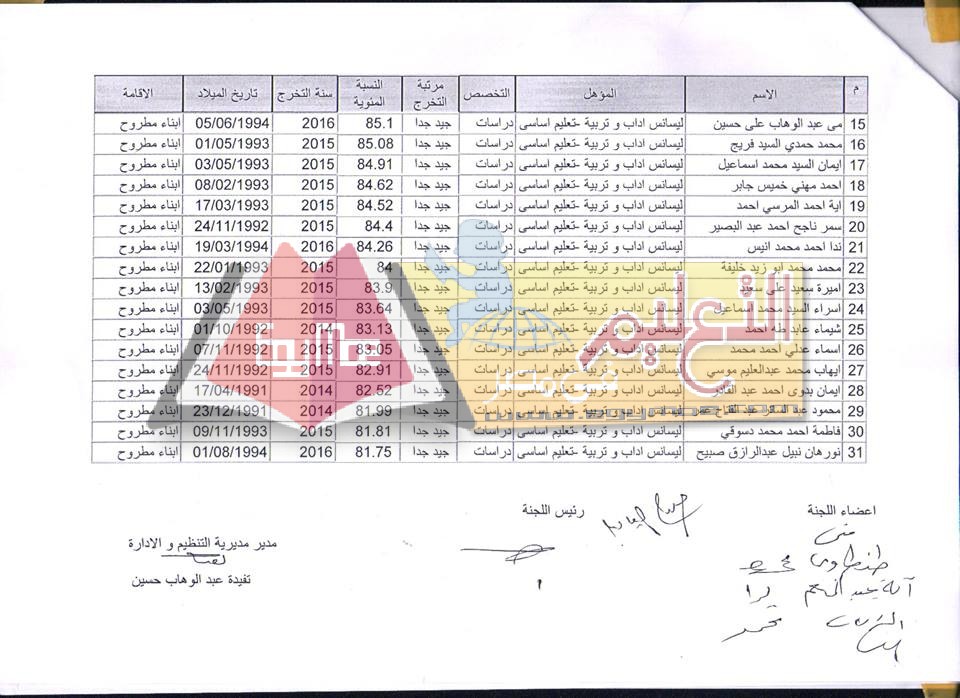 م الاسم المؤهل التخصص مرتبة التخرج النسبة المئوية سنة التخرج تاريخ الميلاد الاقامة
15 مى عبد الوهاب على حسين ليسانس اداب و تربية -تعليم اساسى دراسات جيد جدا 85.1 2016 05/06/1994 ابناء مطروح
16 محمد حمدي السيد فريج ليسانس اداب و تربية -تعليم اساسى دراسات جيد جدا 85.08 2015 01/05/1993 ابناء مطروح
17 ايمان السيد محمد اسماعيل ليسانس اداب و تربية -تعليم اساسى دراسات جيد جدا 84.91 2015 03/05/1993 ابناء مطروح
18 احمد مهني خميس جابر ليسانس اداب و تربية -تعليم اساسى دراسات جيد جدا 84.62 2015 08/02/1993 ابناء مطروح
19 اية احمد المرسي احمد ليسانس اداب و تربية -تعليم اساسى دراسات جيد جدا 84.52 2015 17/03/1993 ابناء مطروح
20 سمر ناجح احمد عبد البصير ليسانس اداب و تربية -تعليم اساسى دراسات جيد جدا 84.4 2015 24/11/1992 ابناء مطروح
21 ندا احمد محمد انيس ليسانس اداب و تربية -تعليم اساسى دراسات جيد جدا 84.26 2016 19/03/1994 ابناء مطروح
22 محمد محمد ابو زيد خليفة ليسانس اداب و تربية -تعليم اساسى دراسات جيد جدا 84 2015 22/01/1993 ابناء مطروح
23 اميرة سعيد على سعيد ليسانس اداب و تربية -تعليم اساسى دراسات جيد جدا 83.9 2015 13/02/1993 ابناء مطروح
24 اسراء السيد محمد اسماعيل ليسانس اداب و تربية -تعليم اساسى دراسات جيد جدا 83.64 2015 03/05/1993 ابناء مطروح
25 شيماء عابد طه احمد ليسانس اداب و تربية -تعليم اساسى دراسات جيد جدا 83.13 2014 01/10/1992 ابناء مطروح
26 اسماء عدلي احمد محمد ليسانس اداب و تربية -تعليم اساسى دراسات جيد جدا 83.05 2015 07/11/1992 ابناء مطروح
27 ايهاب محمد عبدالعليم موسي ليسانس اداب و تربية -تعليم اساسى دراسات جيد جدا 82.91 2015 24/11/1992 ابناء مطروح
28 ايمان بدوى احمد عبد القادر ليسانس اداب و تربية -تعليم اساسى دراسات جيد جدا 82.52 2014 17/04/1991 ابناء مطروح
29 محمود عبد عبد الفتاح ليسانس اداب و تربية -تعليم اساسى دراسات جيد جدا 81.99 2014 23/12/1991 ابناء مطروح
30 فاطمة احمد محمد دسوقي ليسانس اداب و تربية -تعليم اساسى دراسات جيد جدا 81.81 2015 09/11/1993 ابناء مطروح
31 نورهان نبيل عبدالرازق صبيح ليسانس اداب و تربية -تعليم اساسى دراسات جيد جدا 81.75 2016 01/08/1994 ابناء مطروح
التعليم
فى مصر
اعضاء اللجنة
رئيس اللجنة
مدير مديرية التنظيم و الادارة
تفيدة عبد الوهاب حسين